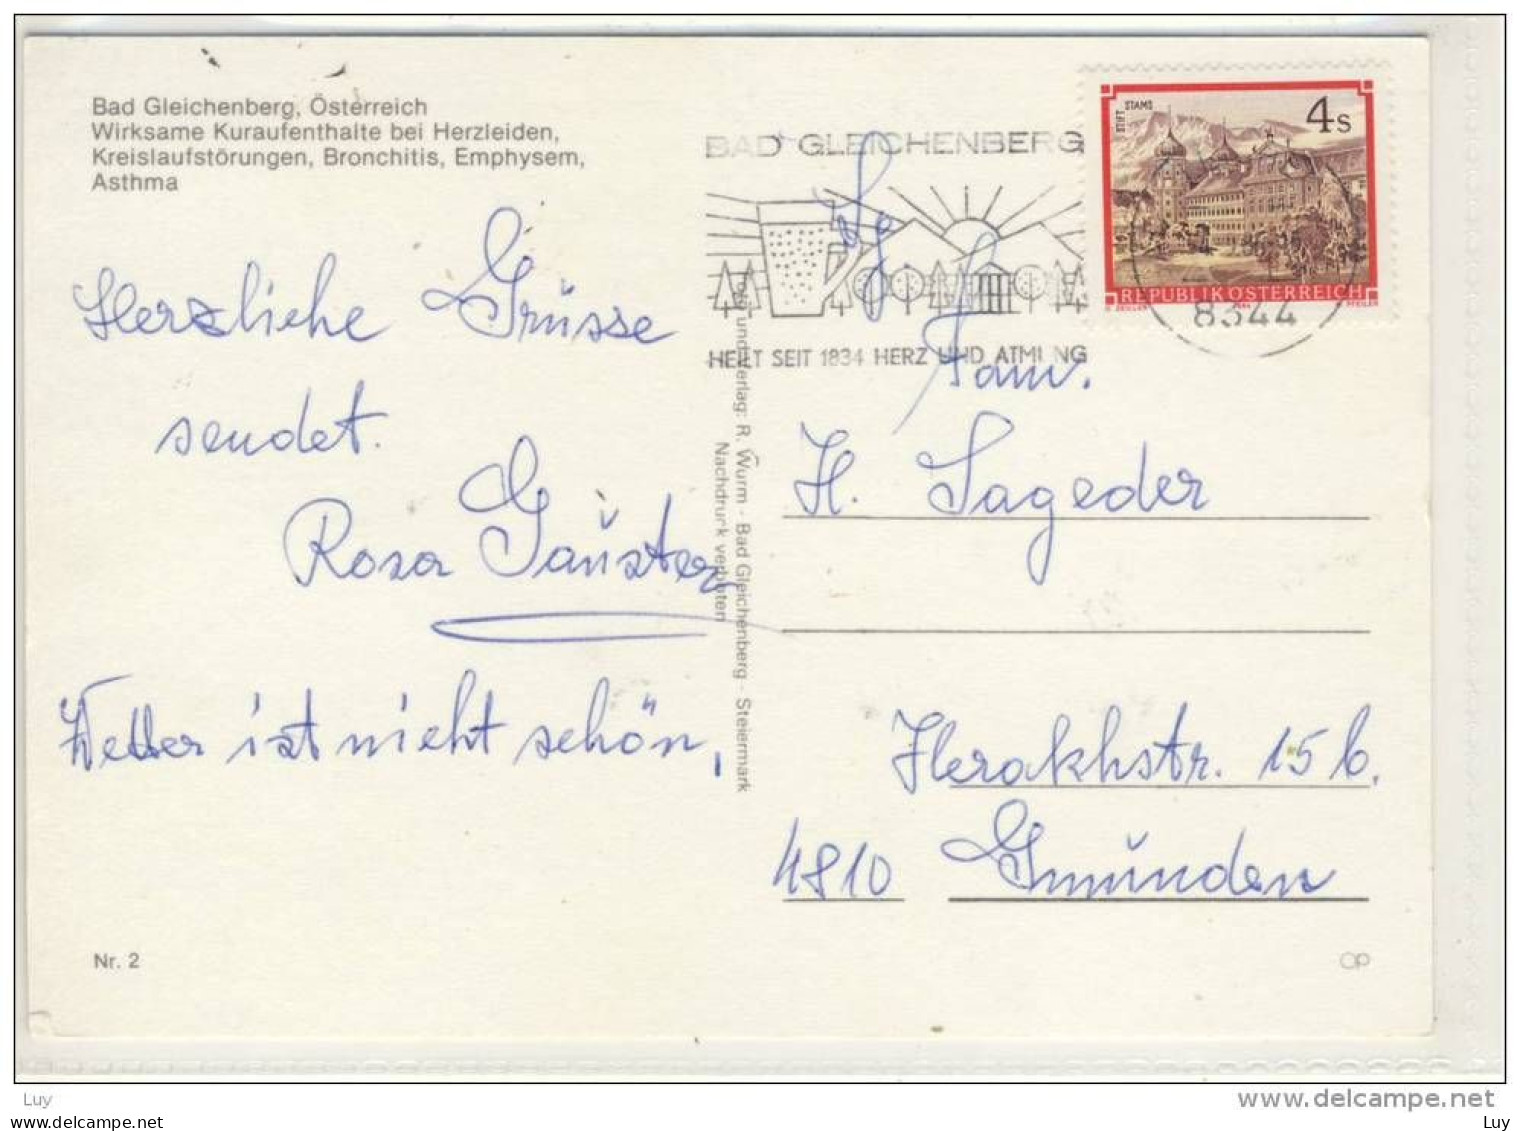 Bad Gleichenberg, Österreich
Wirksame Kuraufenthalte bei Herzleiden,
Kreislaufstörungen, Bronchitis, Emphysem,
Asthma
Herzliche Grüsse
sendet.
Rosa
Wetter ist nicht schön,
Nr. 2
Foto und Verlag: R. Wurm - Bad Gleichenberg - Steiermark
Nachdruck verboten
BAD GLEICHENBERG
HEILT SEIT 1834 HERZ UND ATMUNG
STIFT STAMS
4s
REPUBLIK ÖSTERREICH
8344
Fam.
H. Sageder
Herakhstr. 15 b.
4810 Gmünden
OP
Luy
www.delcampe.net
www.delcampe.net
Luy